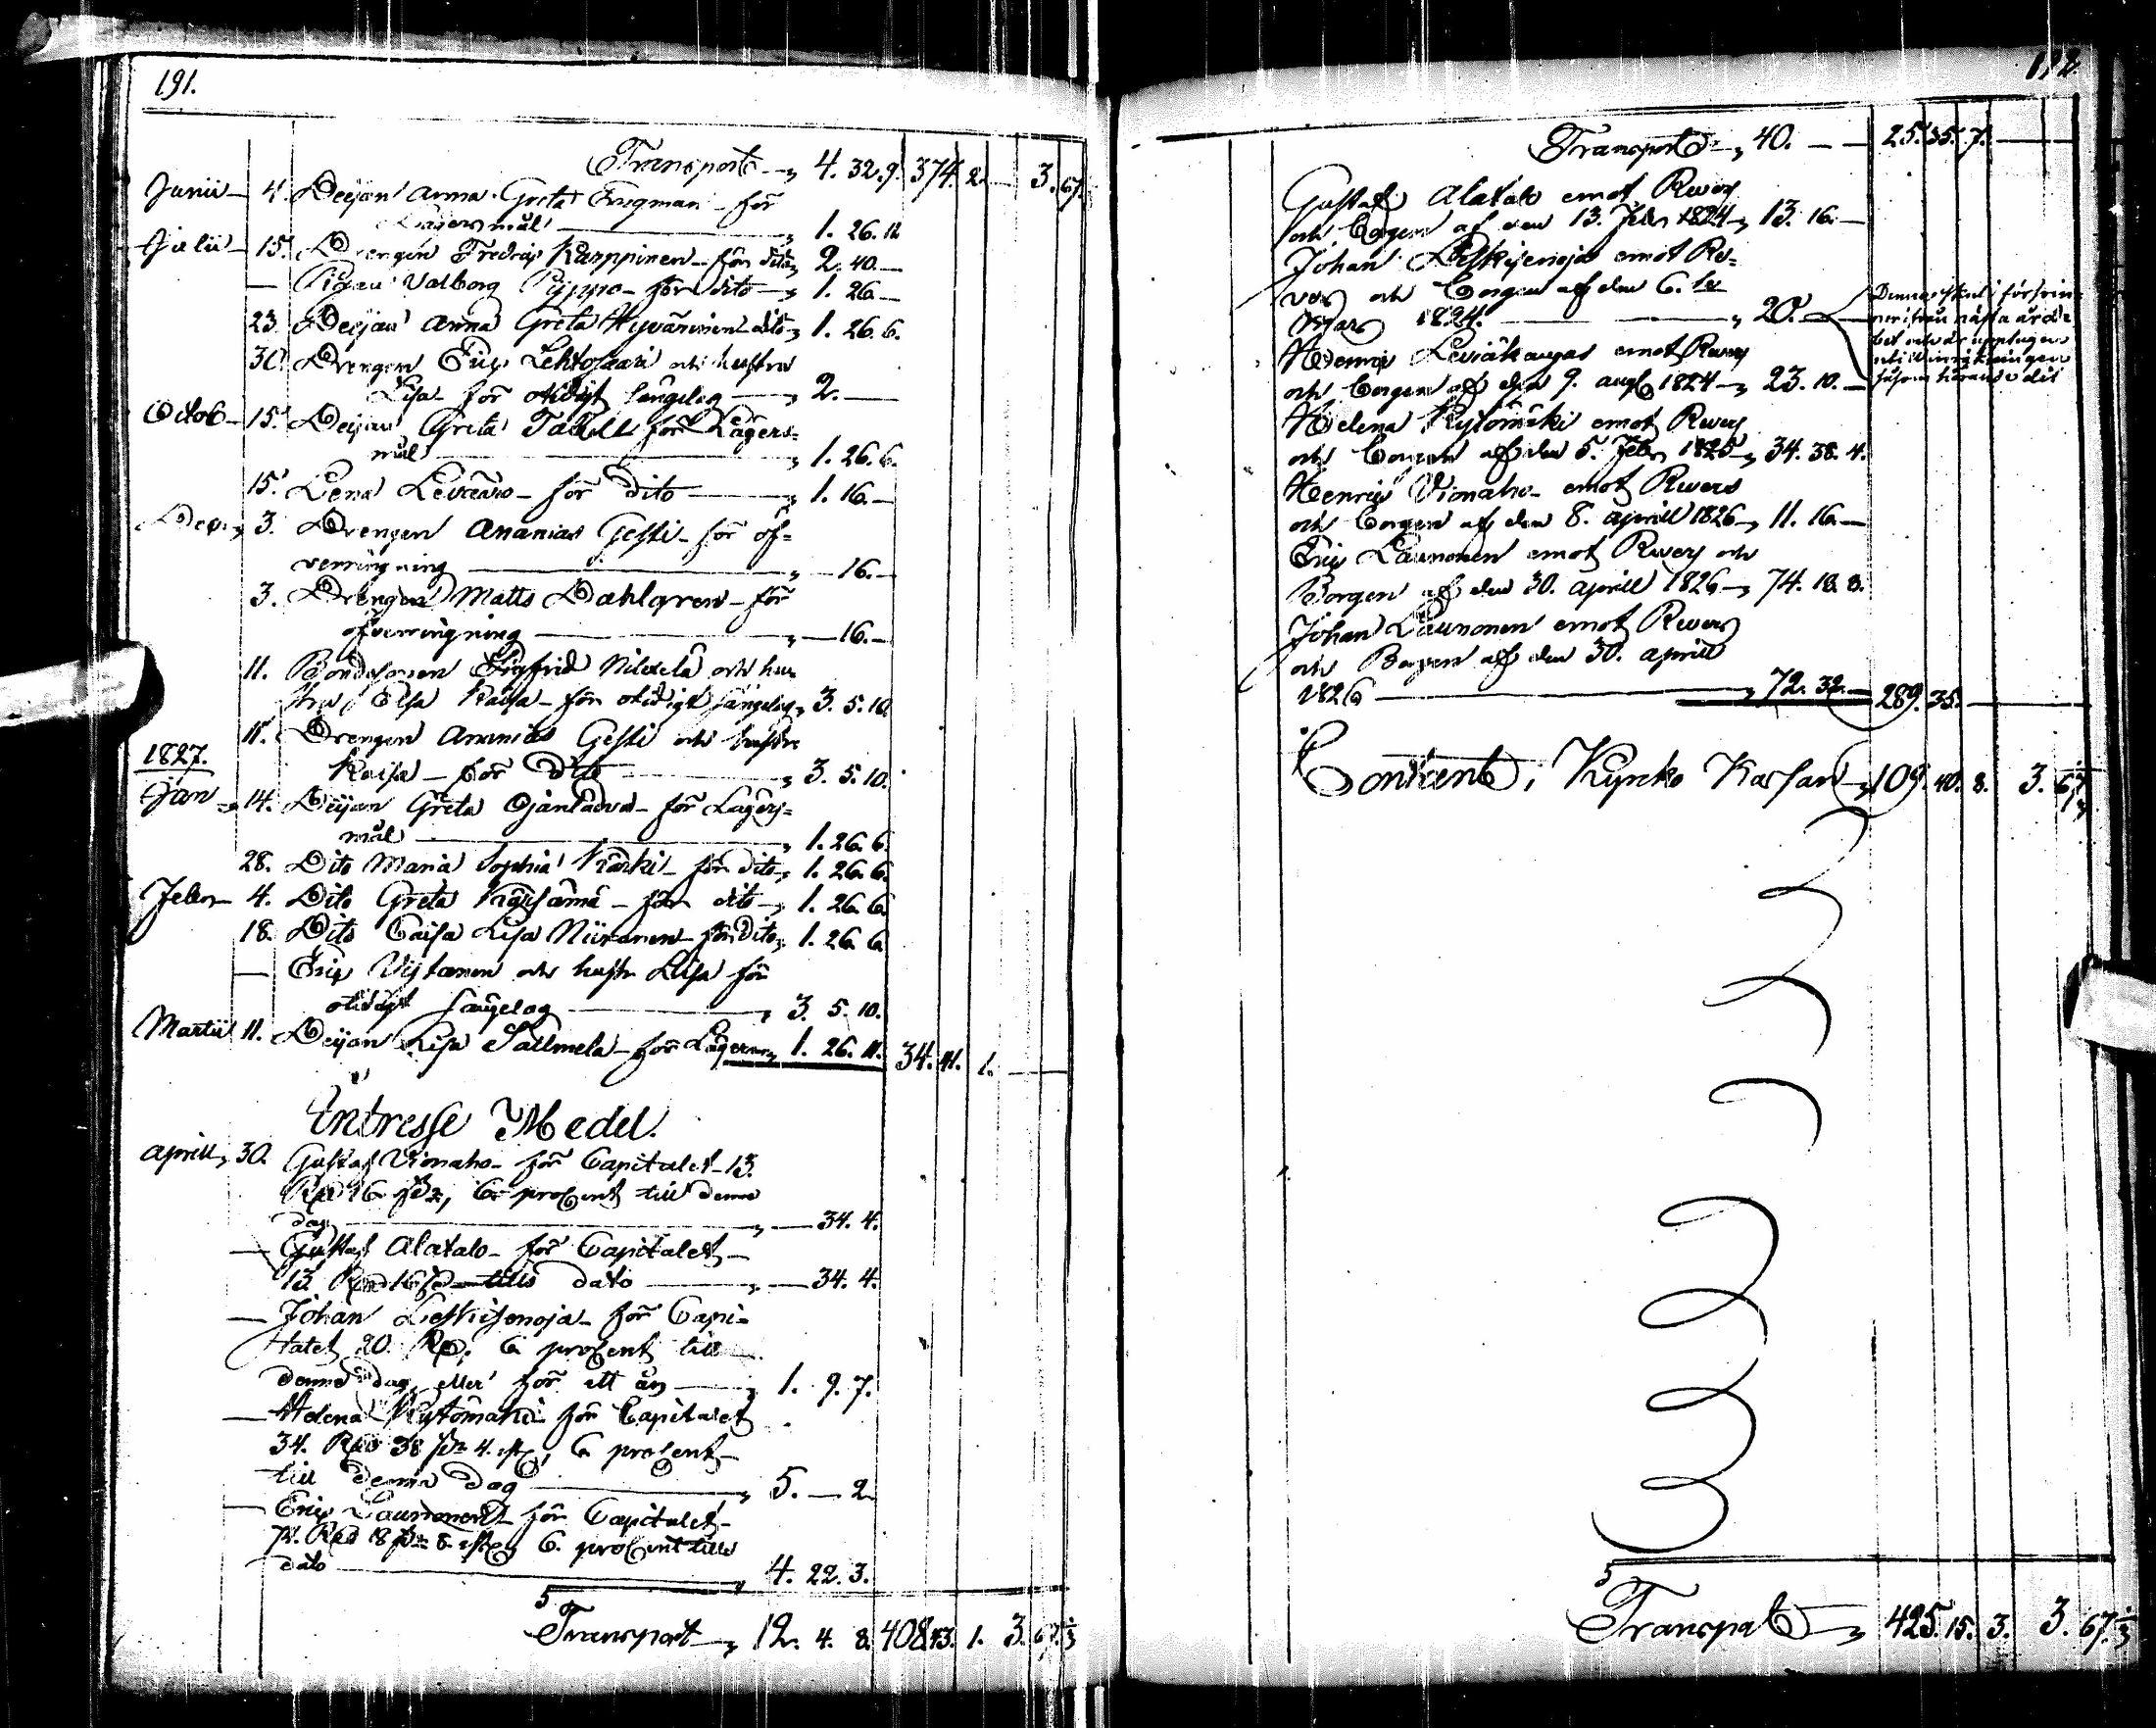 191.
Transport 4. 32. 9. 374. 2. — 3. 67.
Junii 4. Pijan Anna Greta för
Lägersmål 1. 26. 12
Julii 15. Drengen Fredric Karppinen för dito 2. 40. —
— Pigan Valborg Pyppo för dito 1. 26. —
23. Pijan Anna Greta Hyvärinen dito 1. 26. 6.
30. Drengen Eric Lehtosaari och hustru
Lisa för otidigt sängelag 2. —
Octob 15. Pijan Greta för Lägers=
mål 1. 26. 6.
15. Lena för dito 1. 16. —
Dec. 3. Drengen Ananias Gesti för öf=
verringning — 16. —
3. Drengen Matts Dahlgren för
öfverringning — 16. —
11. Bondesonen Sigfrid Nilexelä och hu=
stru Elsa Kaisa för otidigt sängelag 3. 5. 10.
11. Drengen Ananias Gesti och hustru
Kaisa för dito 3. 5. 10.
1827.
Jan 14. Pijan Greta för Lägers=
mål 1. 26. 6.
28. Dito Maria Sophia Kärki för dito 1. 26. 6.
Febr 4. Dito Greta Kärsämä för dito 1. 26. 6.
18. Dito Caisa Lisa Niiranen för dito 1. 26. 6.
— Eric och hustr Lisa för
otidigt sängelag 3. 5. 10.
Martii 11. Pijan Lisa Sallmela för Lägersm 1. 26. 11. 34. 41. 1. —
Intresse Medel.
Aprill 30. Gustaf Vionaho för Capitalet 13.
Rd 16 sk, 6 procent till denna
dag — 34. 4.
— Gustaf Alatalo för Capitalet
13 Rd 16 sk tills dato — 34. 4.
— Johan Leskisenoja för Capi=
talet 20 Rd, 6 procent till
denna dag eller för ett år 1. 9. 7.
— Helena Kytömäki för Capitalet
34. Rd 38 sk 4. rst, 6 procent
till denna dag 5. — 2
— Eric Launonen för Capitalet
74. Rd 18 sk 8. rst, 6. procent tills
dato 4. 22. 3.
Transport 12. 4. 8. 408. 43. 1. 3. 67. 1/3
192.
Transport 40. — — 25. 35. 7. —
Gustaf Alatalo emot Revers
och Borgen af den 13. Febr 1824 13. 16. —
Johan Leskisenoja emot Re=
vers och Borgen af den 6.
Mars 1824. 20. —
Denna skul
nästa år
och är upptagen
Henric Leviäkangas emot Revers
och Borgen af den 9. Aug 1824 23. 10. —
Helena Kytömäki emot Revers
och Borgen af den 5. Febr 1825 34. 38. 4.
Henric Vionaho emot Revers
och Borgen af den 8. Aprill 1826 11. 16. —
Eric Launonen emot Revers och
Borgen af den 30. Aprill 1826 74. 18. 8.
Johan Launonen emot Revers
och Borgen af den 30. Aprill
1826 72. 32. — 289. 35. —
Contant i Kyrko Kassan 109. 40. 8. 3. 67. 1/3
Transport 425. 15. 3. 3. 67. 1/3